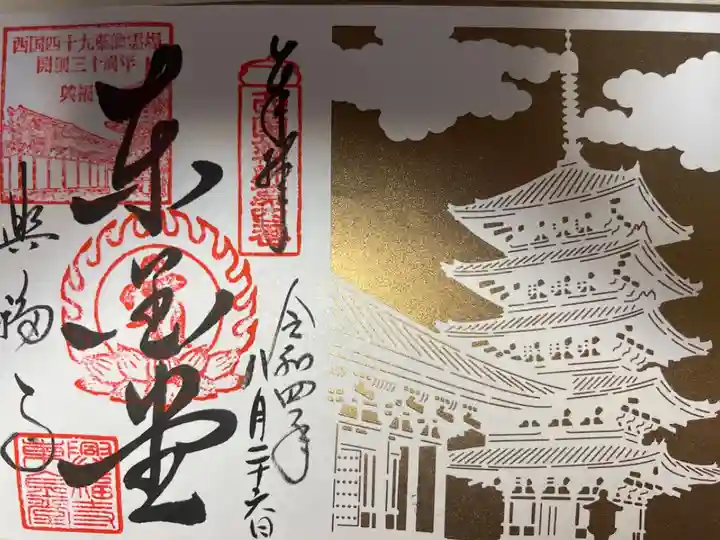 奉拝
令和四年
八月二十六日
東金堂
西国四十九薬師霊場
開創三十周年
興福寺
興福寺
東金堂